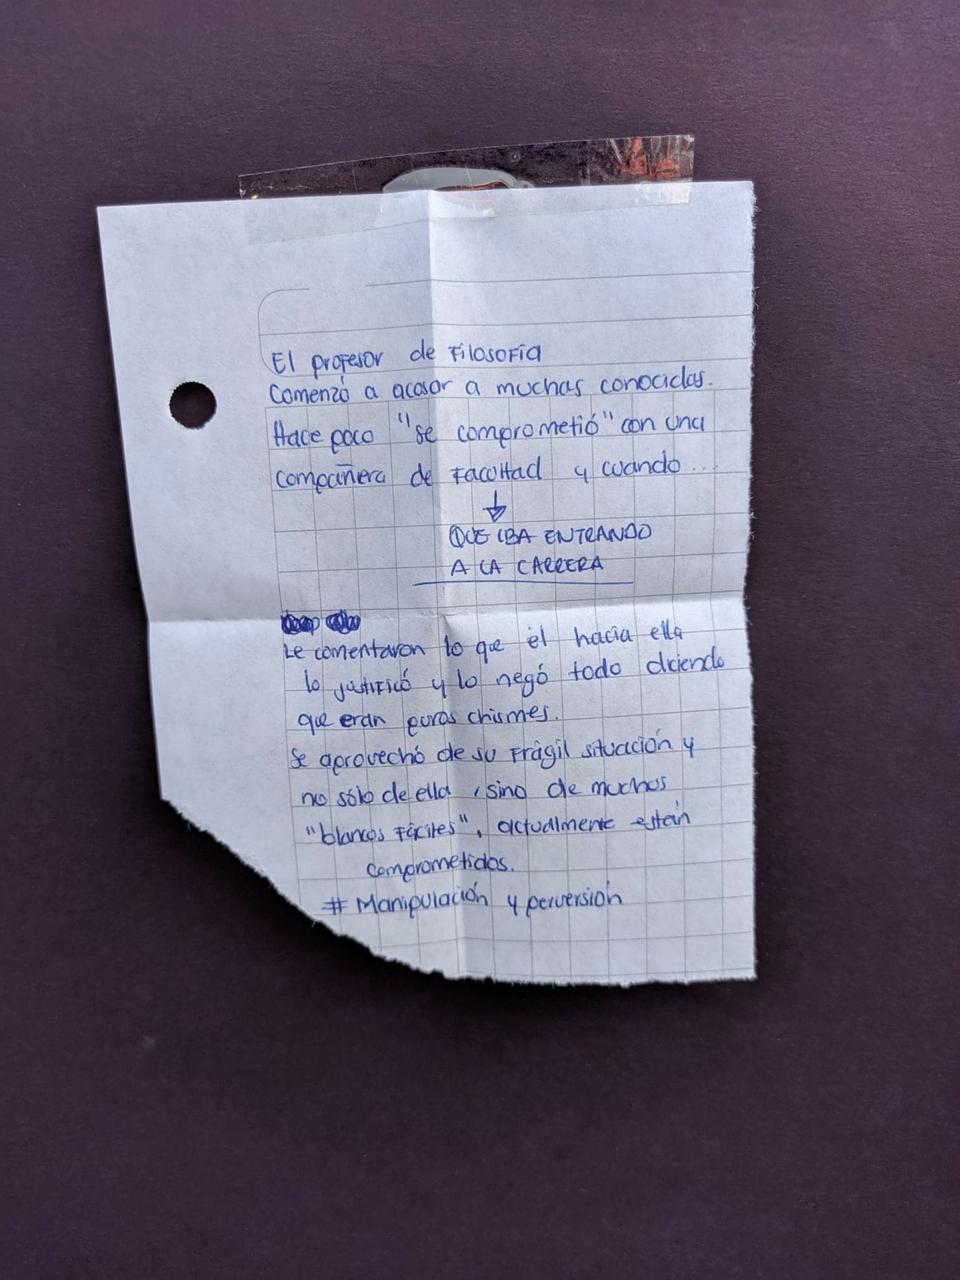 El profesor de Filosofía
Comenzó a acosar a muchas conocidas.
Hace poco "se comprometió" con una
compañera de Facultad y cuando...
↓
QUE IBA ENTRANDO
A LA CARRERA
Le comentaron lo que él hacía ella
lo justificó y lo negó todo diciendo
que eran puros chismes.
Se aprovechó de su Frágil situación y
no sólo de ella, sino de muchos
"blancos Fáciles", actualmente están
comprometidos.
# Manipulación y perversión